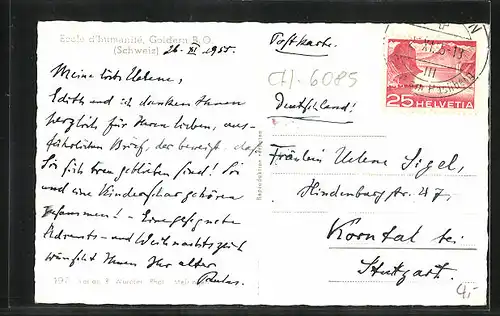 Ecole d'humanité, Goldern B.O.
(Schweiz) 26. XI. 1955.
Meine liebe Helene,
Edith und ich danken Ihnen
herzlich für Ihren lieben, aus-
führlichen Brief, der beweist, daß
Sie sich treu geblieben sind! Sie
und eine Kinderschar gehören
zusammen! – Eine gesegnete
Advents- und Weihnachtszeit
wünscht Ihnen Ihr alter
Paulus.
Postkarte.
CH-6085
Deutschland!
Fräulein Helene Sigel,
Hindenburgstr. 47,
Korntal bei
Stuttgart.
25 HELVETIA
III
Reproduktion
197
4,-